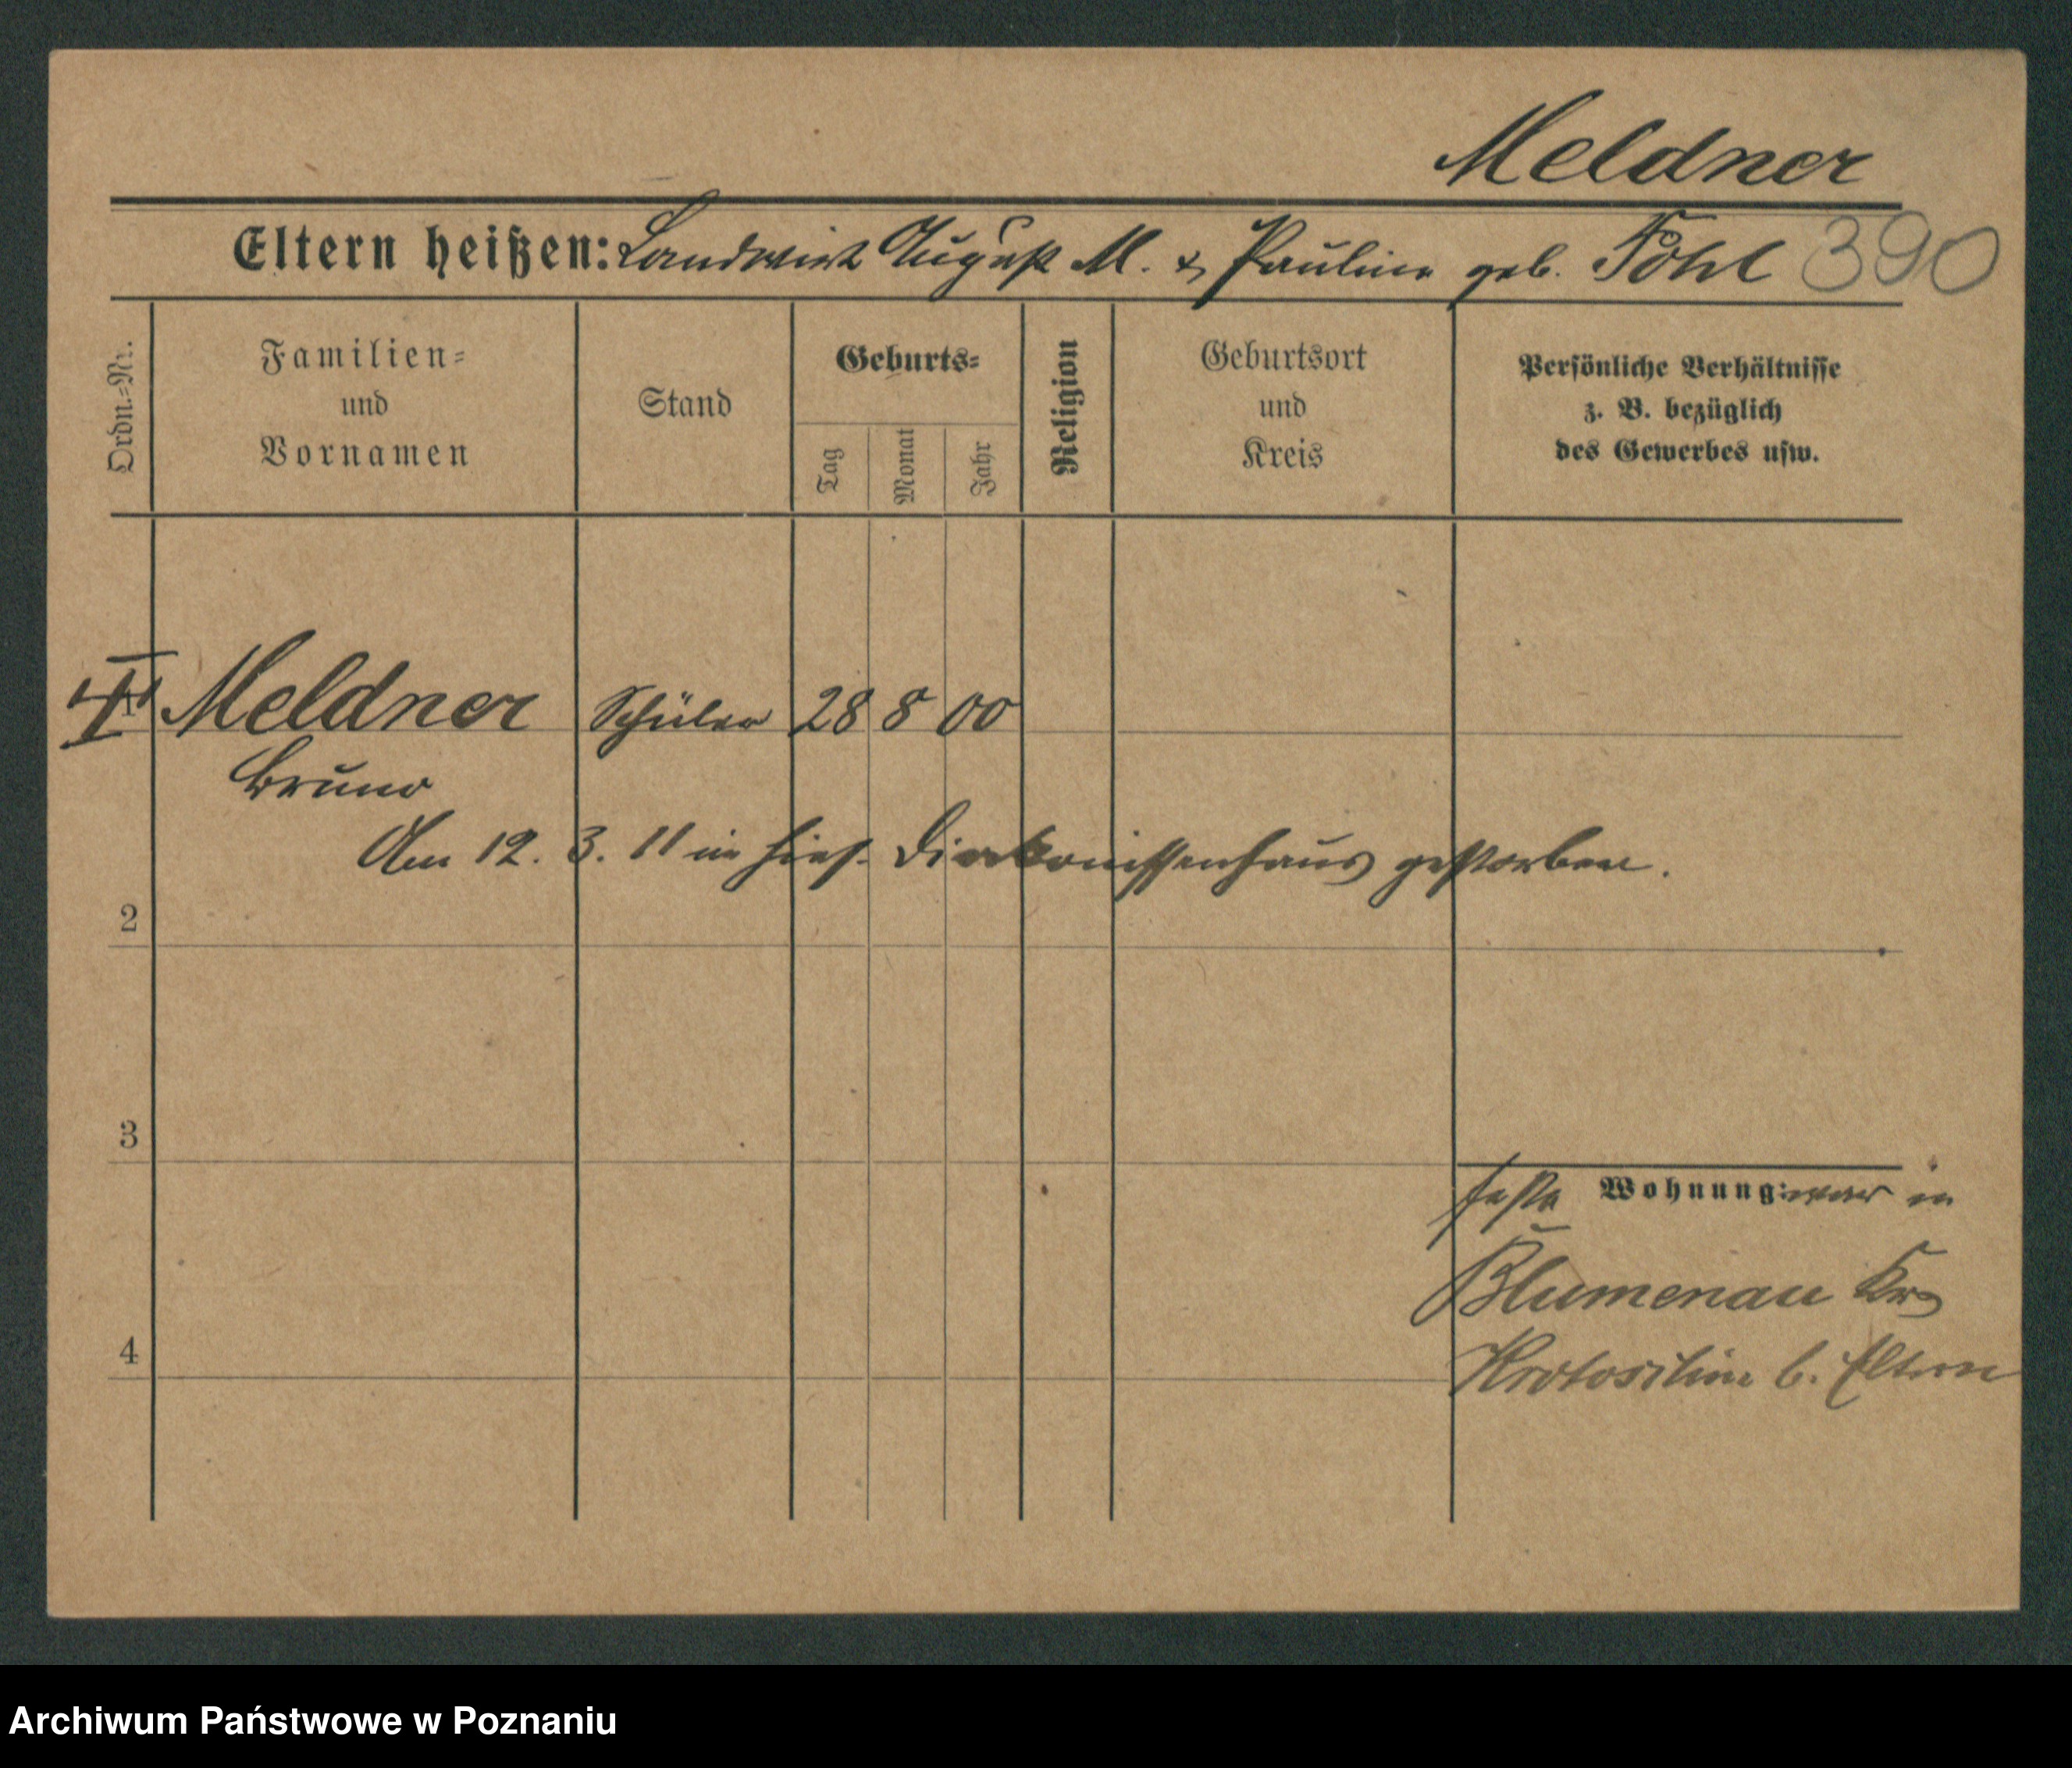 Meldner
Eltern heißen: Landwirt August M. & Pauline geb. Pohl 390
Ordn.=Nr.
Familien=
und
Vornamen
Stand
Geburts=
Tag
Monat
Jahr
Religion
Geburtsort
und
Kreis
Persönliche Verhältnisse
z. B. bezüglich
des Gewerbes usw.
1 Meldner Schüler 28 8 00
Bruno
Am 12. 3. 11 im hies. Diakonissenhaus gestorben.
2
3
feste Wohnung: war in
Blumenau Krs
Krotoschin b. Eltern
4
Archiwum Państwowe w Poznaniu